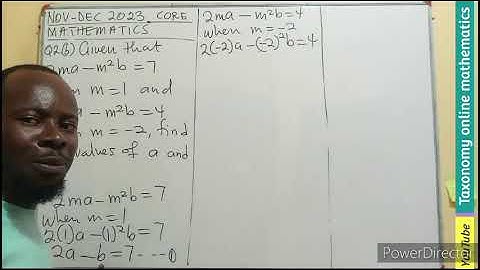 NOV-DEC 2023 CORE
MATHEMATICS
Q2(b) Given that
2ma – m²b = 7
m = 1 and
– m²b = 4
m = –2, find
values of a and
2ma – m²b = 7
when m = 1
2(1)a – (1)²b = 7
2a – b = 7 --- ①
2ma – m²b = 4
when m = –2
2(–2)a – (–2)²b = 4
Taxonomy online mathematics
YouTube
PowerDirector